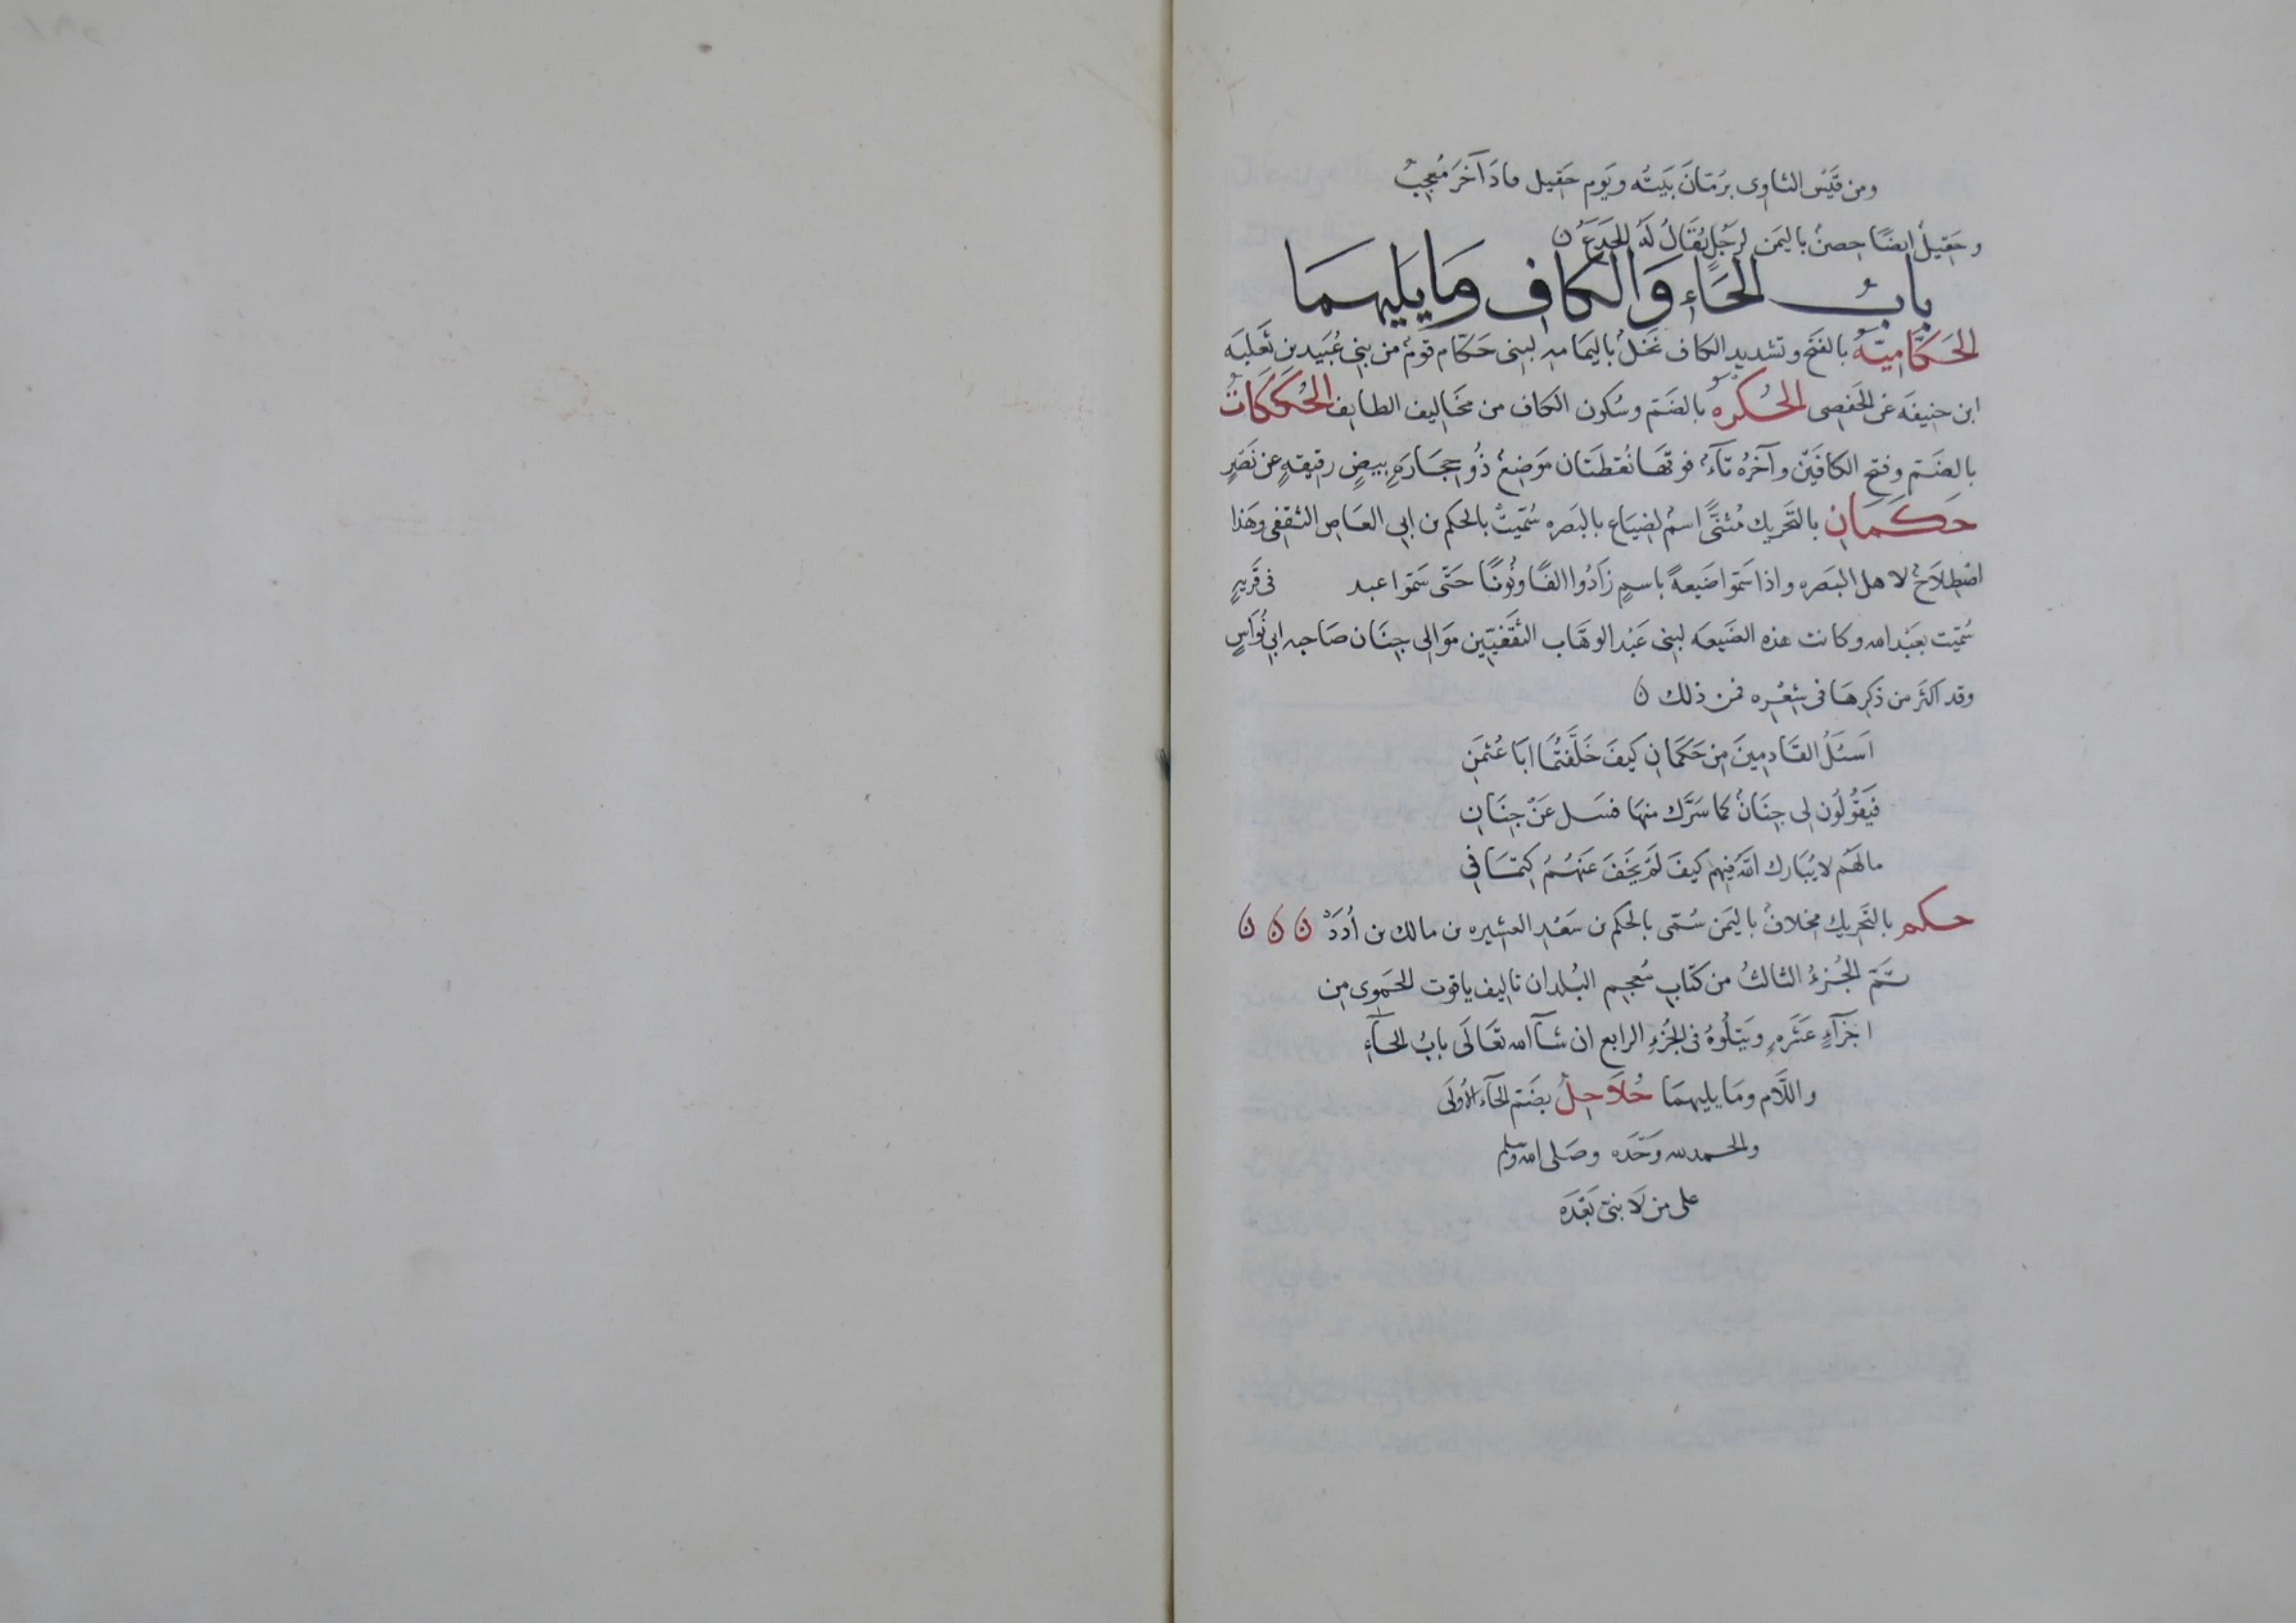 ومن قَيسُ الثاوى برُمّانَ بَيتُه ويَوم حَقيل فادَ آخَرَ مُعجِبُ
وحَقيلُ ايضًا حِصنٌ باليمَن لرَجُلٍ يُقَالُ لَهُ الجَدَعُ ن
بابُ الحَاءِ وَالكافِ وَمَا يَليهمَا
الحَكّاميّةُ بالفتَح وتشديد الكاف نَخلٌ باليمَامه لبنى حَكّام قومٌ من بنى عُبَيد بن ثَعلبَه
ابن حنيفَه عن الحَفصى الحُكرَه بالضَم وسُكون الكاف من مخَاليف الطايف الحُكَكَاتُ
بالضَم وفتح الكافَين وآخرُه تَاءٌ فوقهَا نُقطتَان مَوَضِعٌ ذُو حِجَارَةٍ بيضٍ رقيقهٍ عن نَصَرٍ
حَكَمَانِ بالتَحريك مُثنًّى اسمٌ لضيَاع بالبَصره سُمّيَت بالحكم بن ابى العَاص الثقفى وهَذا
اصْطِلاحٌ لاهل البَصره واذا سَمّوا ضَيعةً باسمٍ زَادُوا الفًا ونُونًا حَتّى سَمّوا عبد فى قَريهٍ
سُمّيت بعَبْد الله وكانت هذه الضَيعه لبنى عَبْد الوهَّاب الثقَفيّين مَوَالى جِنَان صَاحبه ابى نُوَاسٍ
وقد اكثَر من ذكرِهَا فى شِعْرِه فمن ذلك ن
اَسئَلُ القَادِمِينَ مِن حَكَمَانِ كَيفَ خَلَّفتُمَا ابَا عُثمَنِ
فيَقُولُون لى جِنَانٌ كما سَرَّك منهَا فسَل عَنْ جِنَانِ
مالهَم لا يُبَارك اللهُ فيهم كَيفَ لَم يَخفَ عَنهُمُ كِتمَانى
حكم بالتَحريكِ مِخلافٌ باليمَن سُمّى بالحكم بن سَعْدِ العَشِيره بن مالك بن اُدَدْ ن ن ن
تَمّ الجُزءُ الثالثُ من كتابِ مُعجم البُلدان تاليف ياقوت الحَمَوى مِن
اجزآءٍ عَشَرهٍ ويَتلُوهُ فى الجُزءِ الرابع ان شآ الله تعَالَى بابُ الحآءِ
واللَّام ومَا يليهمَا حُلَاحِلُ بضَم الحَآء الأُولَى
والحمد لله وَحْدَه وصَلى الله وسلم
على من لَا نبىّ بَعْدَه